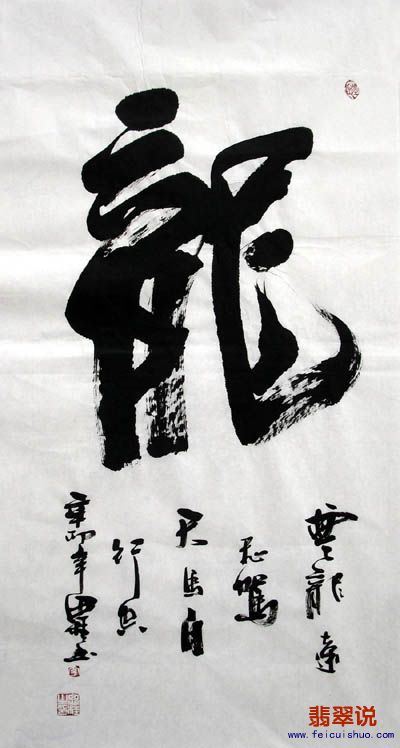 龍
雲龍遠
飛駕
天馬自
行空
辛卯年書
翡翠说
www.feicuishuo.com